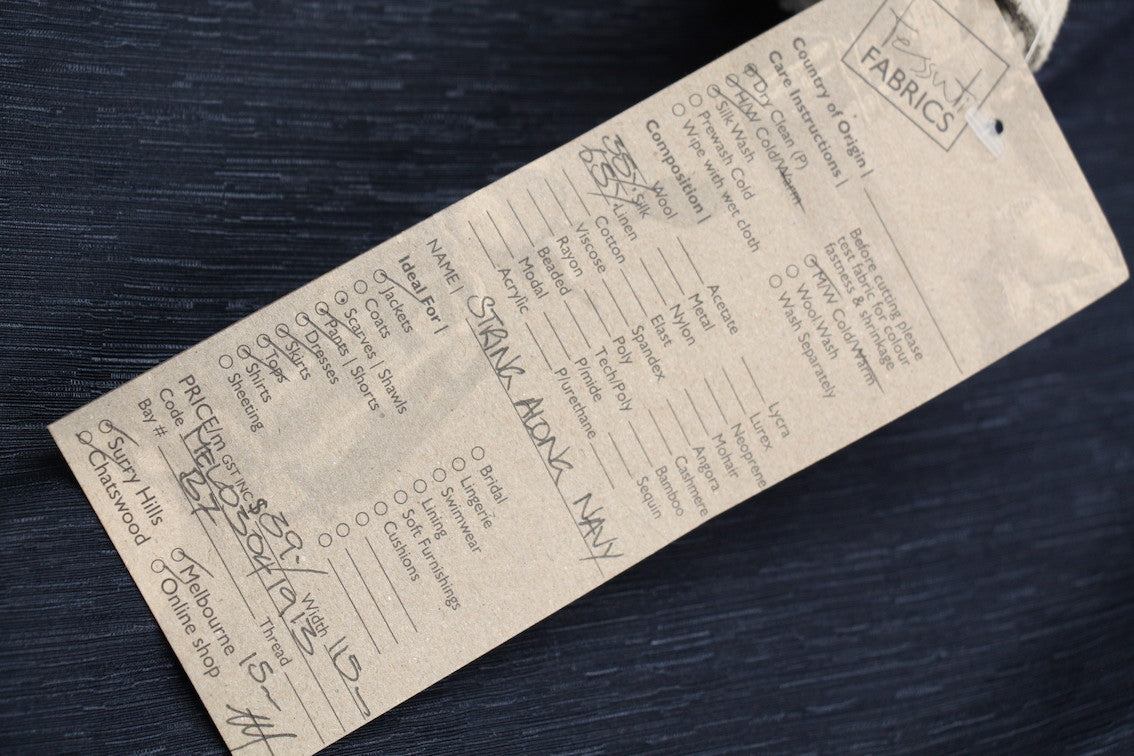 Tessuti
FABRICS
Country of Origin |
Care Instructions |
Dry Clean (P)
H/W Cold/Warm
Silk Wash
Prewash Cold
Wipe with wet cloth
Before cutting please
test fabric for colour
fastness & shrinkage
M/W Cold/Warm
Wool Wash
Wash Separately
Composition |
Wool
35% Silk
65% Linen
Cotton
Viscose
Rayon
Beaded
Modal
Acrylic
Acetate
Metal
Nylon
Elast
Spandex
Poly
Tech/Poly
P/mide
P/urethane
Lycra
Lurex
Neoprene
Mohair
Angora
Cashmere
Bamboo
Sequin
NAME | STRING ALONG NAVY
Ideal For |
Jackets
Coats
Scarves | Shawls
Pants | Shorts
Dresses
Skirts
Tops
Shirts
Sheeting
Bridal
Lingerie
Swimwear
Lining
Soft Furnishings
Cushions
PRICE/m GST INC $ 39.-/ Width 115
Code MEL030041913
Bay # B7 Thread
Surry Hills
Chatswood
Melbourne 15m
Online shop